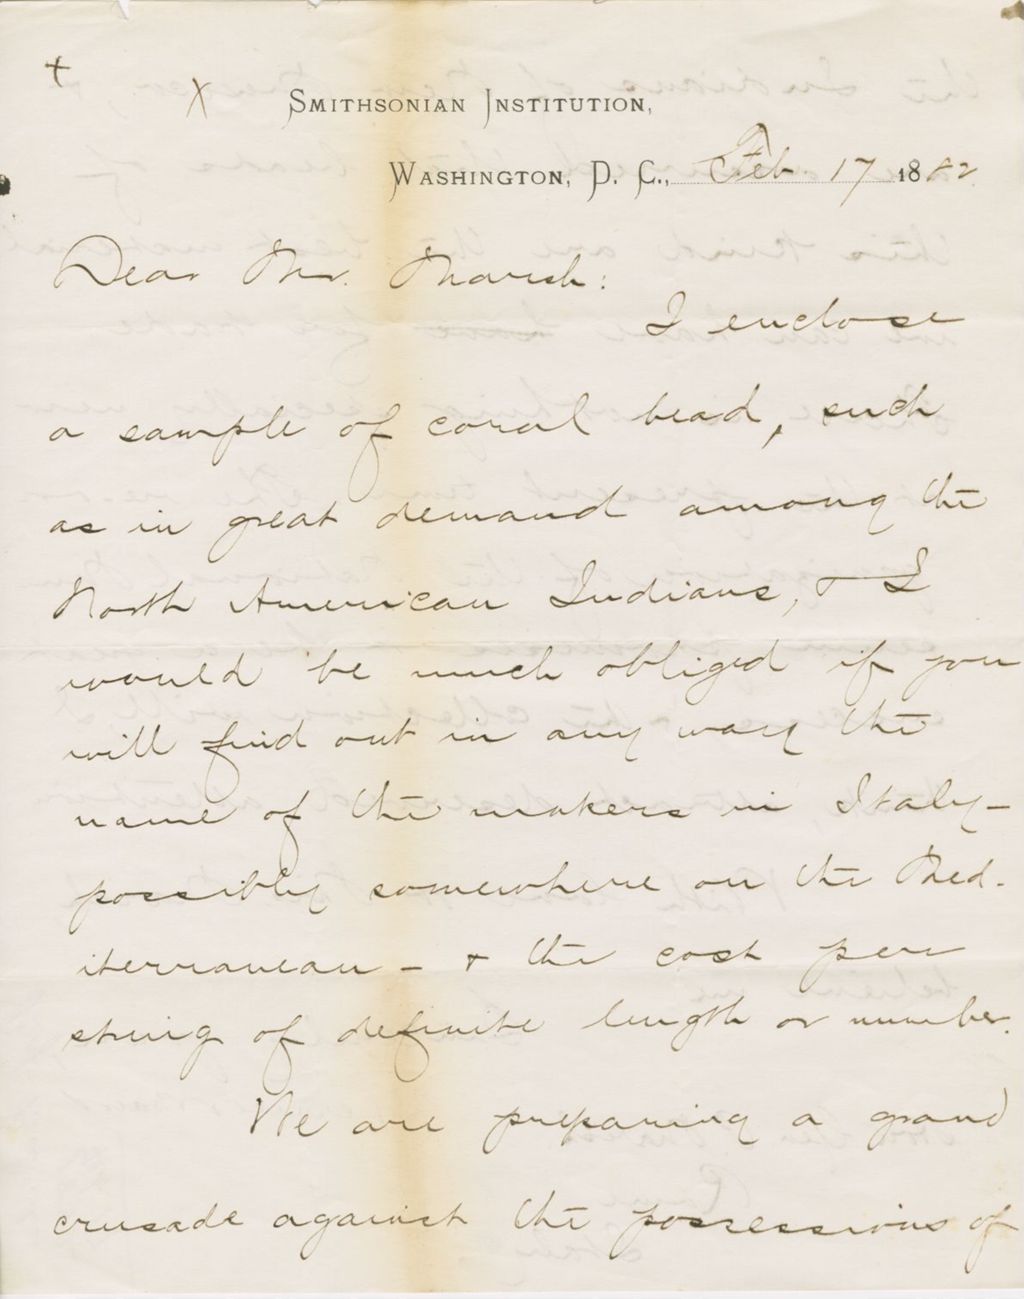 Smithsonian Institution,
Washington, D. C., Feb. 17 1882
Dear Mr. Marsh:
I enclose
a sample of coral bead, such
as in great demand among the
North American Indians, & I
would be much obliged if you
will find out in any way the
name of the makers in Italy –
possibly somewhere on the Med-
iterranean – & the cost per
string of definite length or number.
We are preparing a grand
crusade against the possessions of